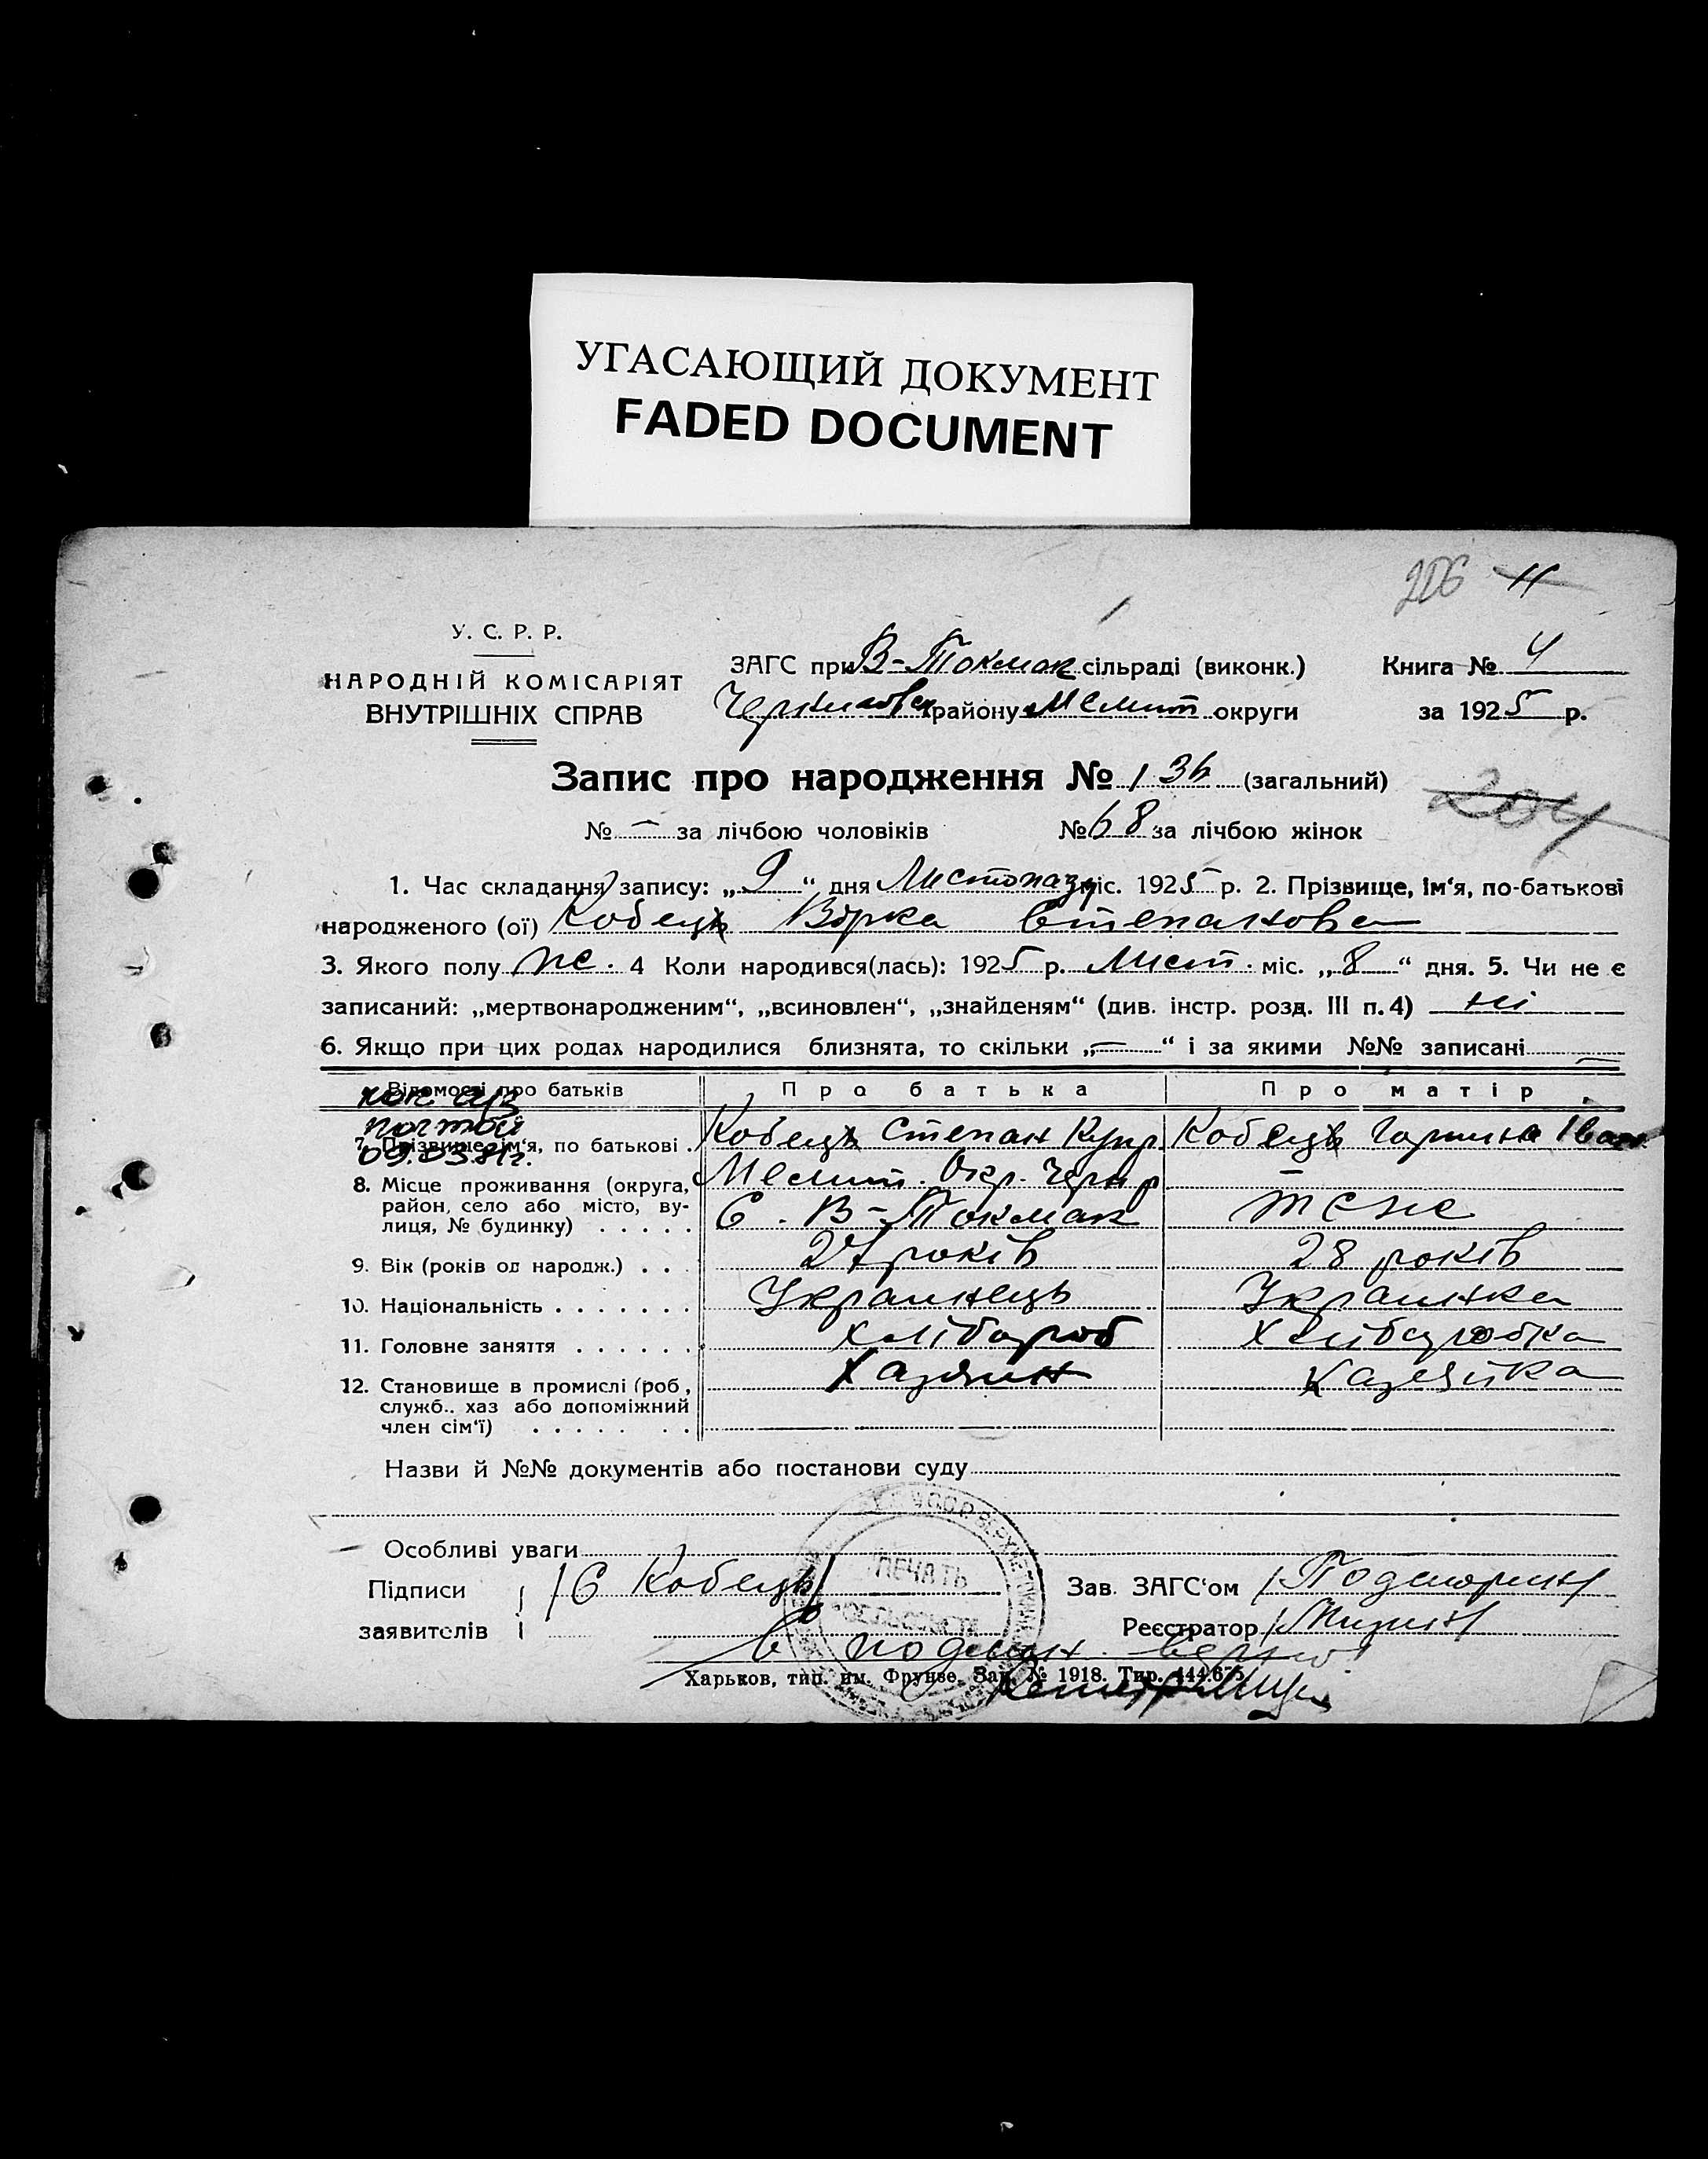 УГАСАЮЩИЙ ДОКУМЕНТ
FADED DOCUMENT
206 11
У. С. Р. Р.
НАРОДНІЙ КОМІСАРІЯТ
ВНУТРІШНІХ СПРАВ
ЗАГС при В-Токмак сільраді (виконк.)
району Меліт округи
Книга № 4
за 1925 р.
Запис про народження № 136 (загальний)
204
№ — за лічбою чоловіків № 68 за лічбою жінок
1. Час складання запису: „9“ дня Листопаду міс. 1925 р. 2. Прізвище, ім‘я, по-батькові
народженого (ої) Кобець Вірка Степанова
3. Якого полу же. 4 Коли народився(лась): 1925 р. Лист. міс. „8“ дня. 5. Чи не є
записаний: „мертвонародженим“, „всиновлен“, „знайденям“ (див. інстр. розд. III п. 4) ні
6. Якщо при цих родах народилися близнята, то скільки „—“ і за якими №№ записані —
Відомості про батьків Про батька Про матір
почтой
09.03.81г.
7. Прізвище, ім‘я, по батькові . Кобець Степан Купр Кобець Горпина Іван
8. Місце проживання (округа, район, село або місто, вулиця, № будинку) . . . . . Меліт. Окр. Черн р —
С. В-Токмак теже
9. Вік (років од народж.) . . . 27 років 28 років
10. Національність . . . . . . . Украинець Украинка
11. Головне заняття . . . . . . Хлібороб Хліборобка
12. Становище в промислі (роб, служб.. хаз або допоміжний член сім‘ї) . . . . . . . Хазяин Хазяйка
Назви й №№ документів або постанови суду
Особливі уваги
Підписи / С Кобець / Зав. ЗАГС‘ом /
заявителів Реєстратор /
ПЕЧАТЬ
С подлин. верно
Харьков, тип. им. Фрунзе. Зак. № 1918. Тир. 444.675